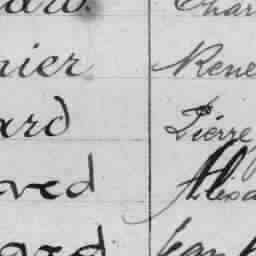 ard. Char
nier Rene
ard Pierre
aved Alexa
gard Jean